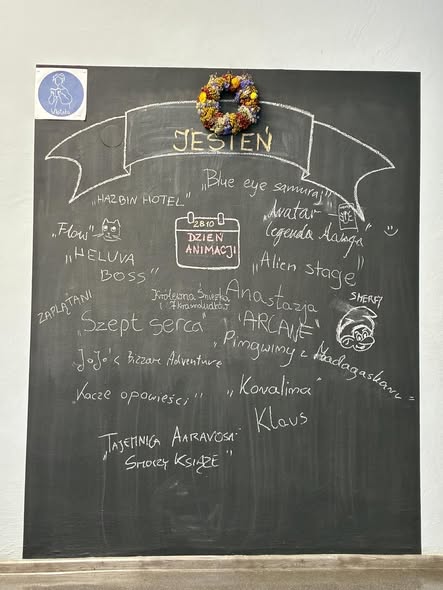 JESIEŃ
"Blue eye samuraj"
"HAZBIN HOTEL"
"Avatar
legenda Aanga"
"Flow"
28.10
DZIEŃ
ANIMACJI
"HELUVA
BOSS"
"Alien stage"
ZAPLĄTANI
Królewna Śnieżka
i 7 krasnoludków
Anastazja
SMERFY
"Szept serca"
"ARCANE"
"Pingwiny z Madagaskaru"
"JoJo's Bizzare Adventure"
"Kacze opowieści"
"Koralina"
Klaus
"TAJEMNICA AARAVOSA:
SMOCZY KSIĄŻE"